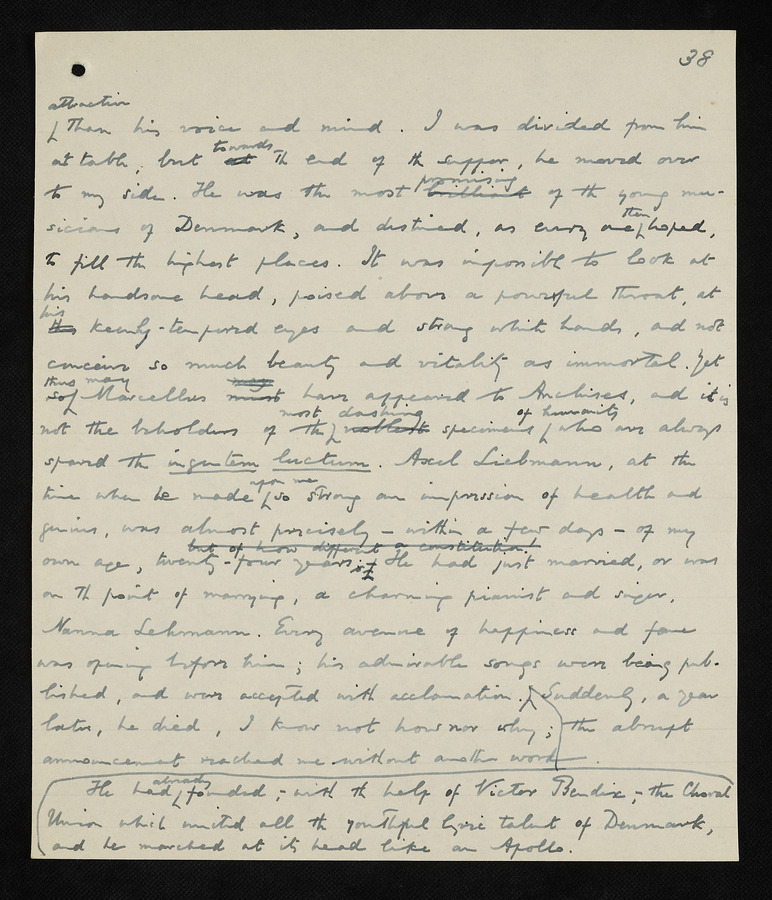 38
attractive
than his voice and mind. I was divided from him
towards
at table, but at the end of the supper, he moved over
promising
to my side. He was the most brilliant of the young mu-
then
sicians of Denmark, and destined, as every one hoped,
to fill the highest places. It was impossible to look at
his handsome head, poised above a powerful throat, at
his
the keenly-tempered eyes and strong white hands, and not
conceive so much beauty and vitality as immortal. Yet
thus may may
so Marcellus must have appeared to Anchises, and it is
most dashing of humanity
not the beholders of the noblest specimens who are always
spared the ingentem luctum. Axel Liebmann, at the
upon me
time when he made so strong an impression of health and
genius, was almost precisely – within a few days – of my
but of how different a constitution!
own age, twenty-four years. He had just married, or was
on the point of marrying, a charming pianist and singer,
Nanna Lehmann. Every avenue of happiness and fame
was opening before him; his admirable songs were being pub-
lished, and were accepted with acclamation. Suddenly, a year
later, he died, I know not how nor why; the abrupt
announcement reached me without another word.
already
He had founded, – with the help of Victor Bendix, – the Choral
Union which united all the youthful lyric talent of Denmark,
and he marched at its head like an Apollo.